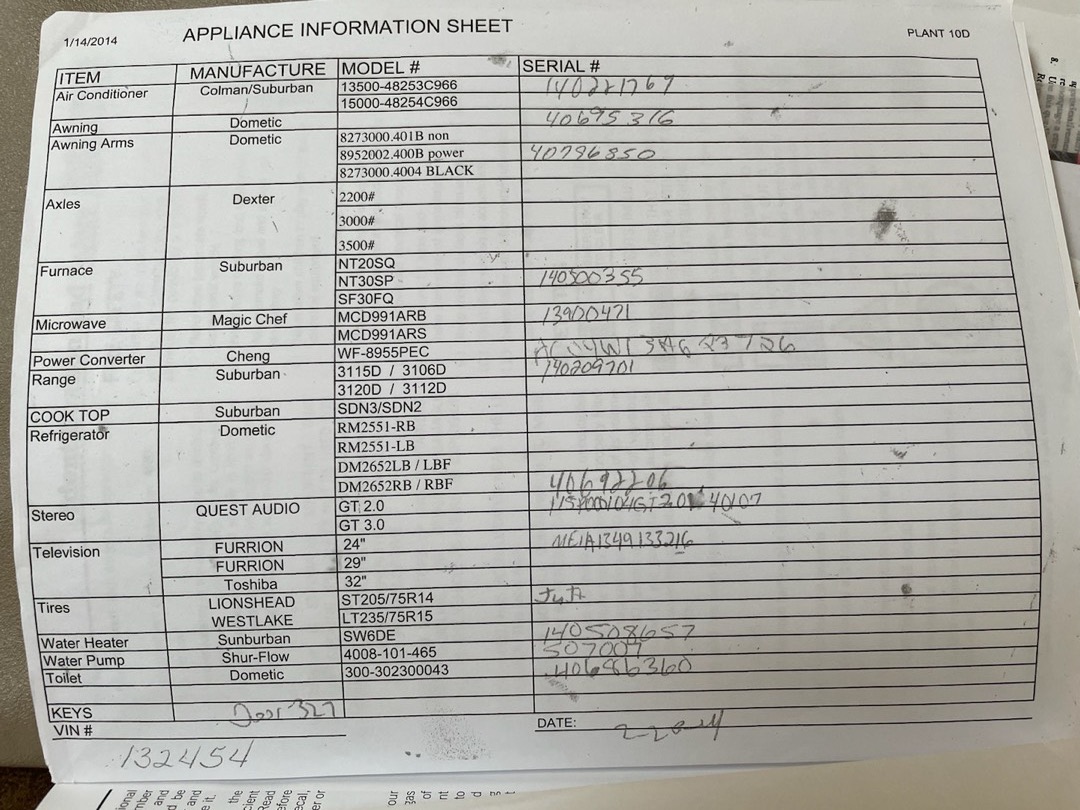 1/14/2014 APPLIANCE INFORMATION SHEET PLANT 10D
ITEM MANUFACTURE MODEL # SERIAL #
Air Conditioner Colman/Suburban 13500-48253C966 140221769
15000-48254C966
Awning Dometic 40695316
Awning Arms Dometic 8273000.401B non
8952002.400B power 40796850
8273000.4004 BLACK
Axles Dexter 2200#
3000#
3500#
Furnace Suburban NT20SQ
NT30SP 140500355
SF30FQ
Microwave Magic Chef MCD991ARB
MCD991ARS
Power Converter Cheng WF-8955PEC
Range Suburban 3115D / 3106D 140209701
3120D / 3112D
COOK TOP Suburban SDN3/SDN2
Refrigerator Dometic RM2551-RB
RM2551-LB
DM2652LB / LBF
DM2652RB / RBF 40692206
Stereo QUEST AUDIO GT 2.0
GT 3.0
Television FURRION 24"
FURRION 29"
Toshiba 32"
Tires LIONSHEAD ST205/75R14
WESTLAKE LT235/75R15
Water Heater Sunburban SW6DE 140508657
Water Pump Shur-Flow 4008-101-465 507007
Toilet Dometic 300-302300043 40686360
KEYS Door 327
VIN # DATE:
132454